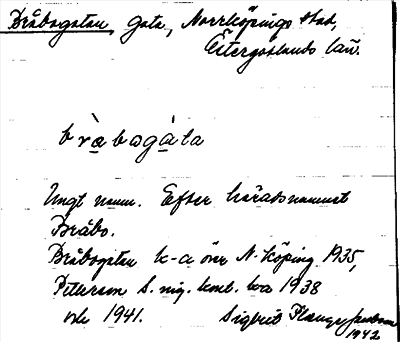 Bråbogatan, gata, Norrköpings stad,
Östergötlands län.
bråbogàta
Ungt namn. Efter häradsnamnet
Bråbo.
Bråbogatan k-a över N-köping 1935,
Peterson S. mig. koml. bva 1938
och 1941. Sigbrit Plænge Jacobson
1942